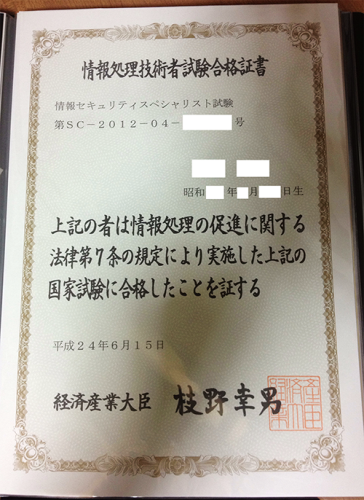 情報処理技術者試験合格証書
情報セキュリティスペシャリスト試験
第SC－2012－04－ 号
昭和 年 月 日生
上記の者は情報処理の促進に関する
法律第7条の規定により実施した上記の
国家試験に合格したことを証する
平成24年6月15日
経済産業大臣 枝野幸男